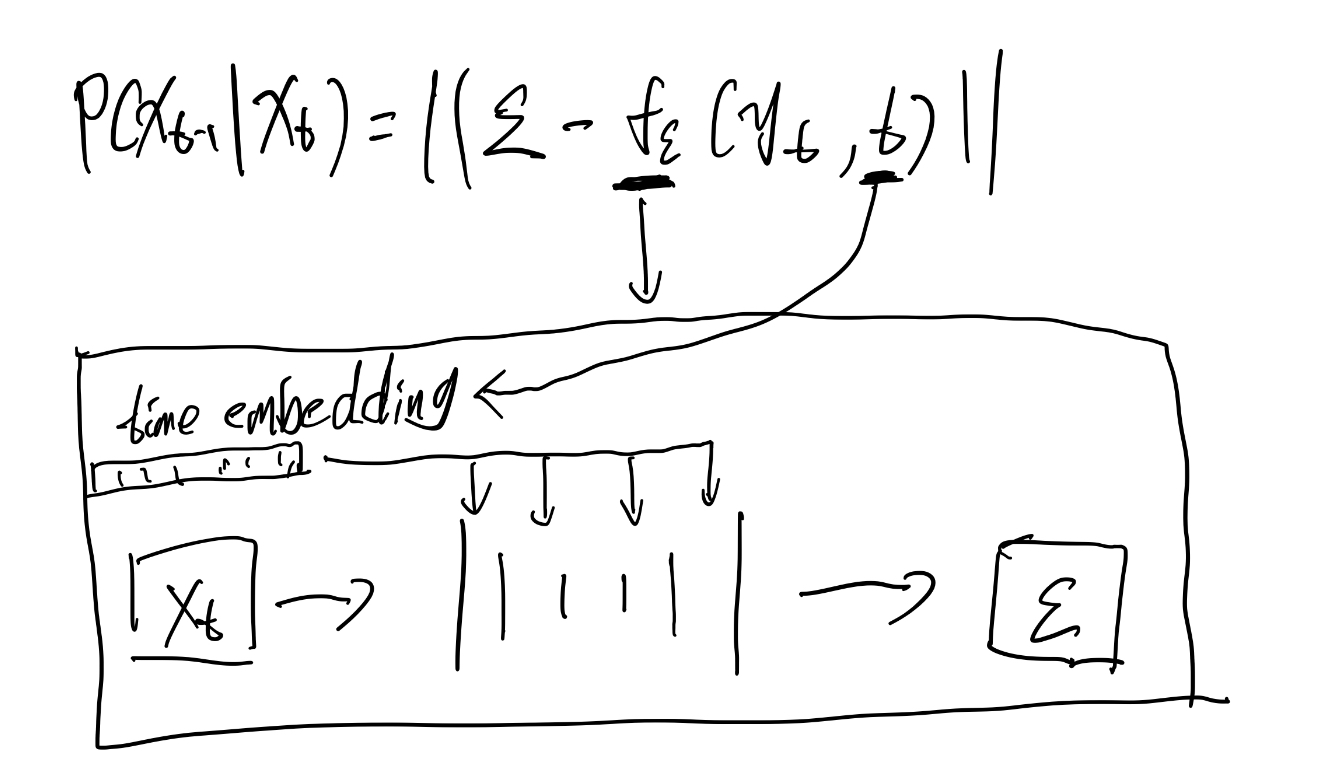 P(x_{t-1} | x_t) = ||(ε - f_ε(y_t, t)||
time embedding
x_t → → ε